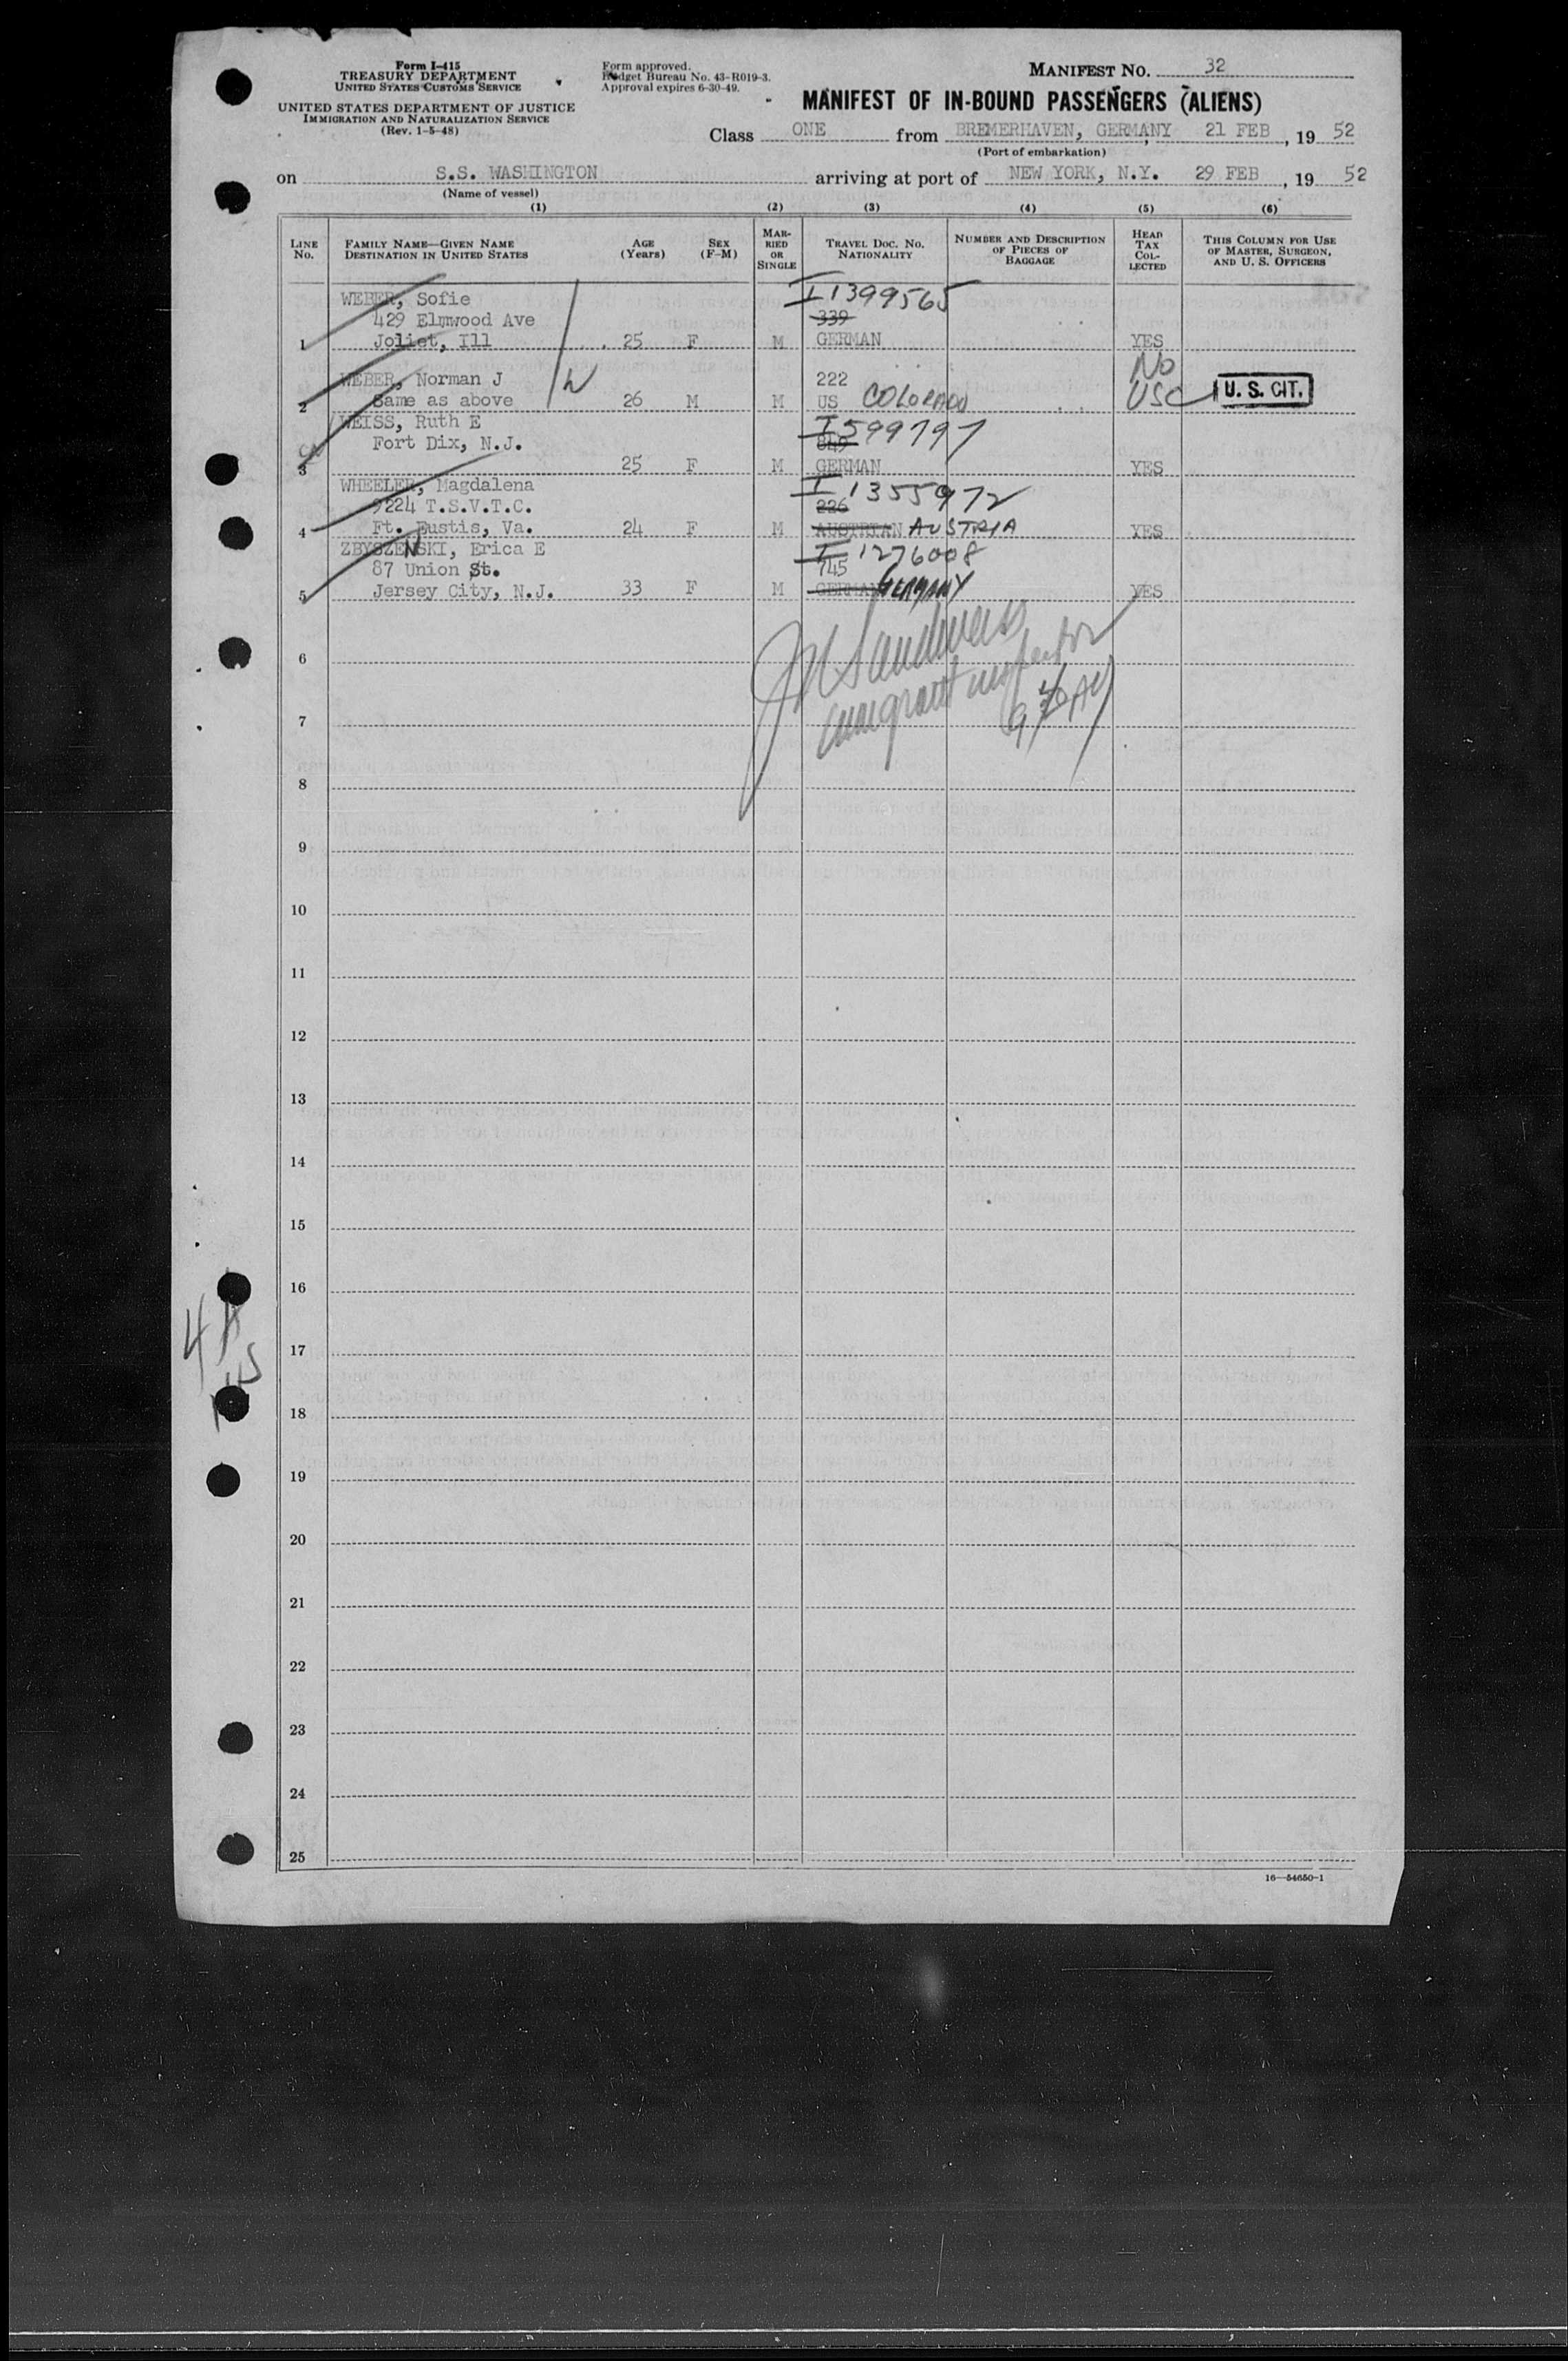 Form I-415
TREASURY DEPARTMENT
UNITED STATES CUSTOMS SERVICE
UNITED STATES DEPARTMENT OF JUSTICE
IMMIGRATION AND NATURALIZATION SERVICE
(Rev. 1-5-48)
Form approved.
Budget Bureau No. 43-R019-3.
Approval expires 6-30-49.
MANIFEST NO. 32
MANIFEST OF IN-BOUND PASSENGERS (ALIENS)
Class ONE from BREMERHAVEN, GERMANY, 21 FEB, 19 52
(Port of embarkation)
on S.S. WASHINGTON arriving at port of NEW YORK, N.Y. 29 FEB, 19 52
(Name of vessel)
(1) (2) (3) (4) (5) (6)
LINE NO.
FAMILY NAME—GIVEN NAME
DESTINATION IN UNITED STATES
AGE (Years)
SEX (F-M)
MARRIED OR SINGLE
TRAVEL DOC. NO.
NATIONALITY
NUMBER AND DESCRIPTION OF PIECES OF BAGGAGE
HEAD TAX COLLECTED
THIS COLUMN FOR USE OF MASTER, SURGEON, AND U. S. OFFICERS
WEBER, Sofie I 1399565
429 Elmwood Ave 339
1 Joliet, Ill 25 F M GERMAN YES
WEBER, Norman J W 222 No
2 Same as above 26 M M US COLORADO USC U. S. CIT.
WEISS, Ruth E I 599797
Fort Dix, N.J. 849
3 25 F M GERMAN YES
WHEELER, Magdalena I 1355972
9224 T.S.V.T.C. 226
4 Ft. Eustis, Va. 24 F M AUSTRIAN AUSTRIA YES
ZBYSZENSKI, Erica E I 1276008
87 Union St. 745
5 Jersey City, N.J. 33 F M GERMAN GERMANY YES
6
immigrant inspector
7
8
9
10
11
12
13
14
15
16
4A
17
1 US
18
19
20
21
22
23
24
25
16—54650-1